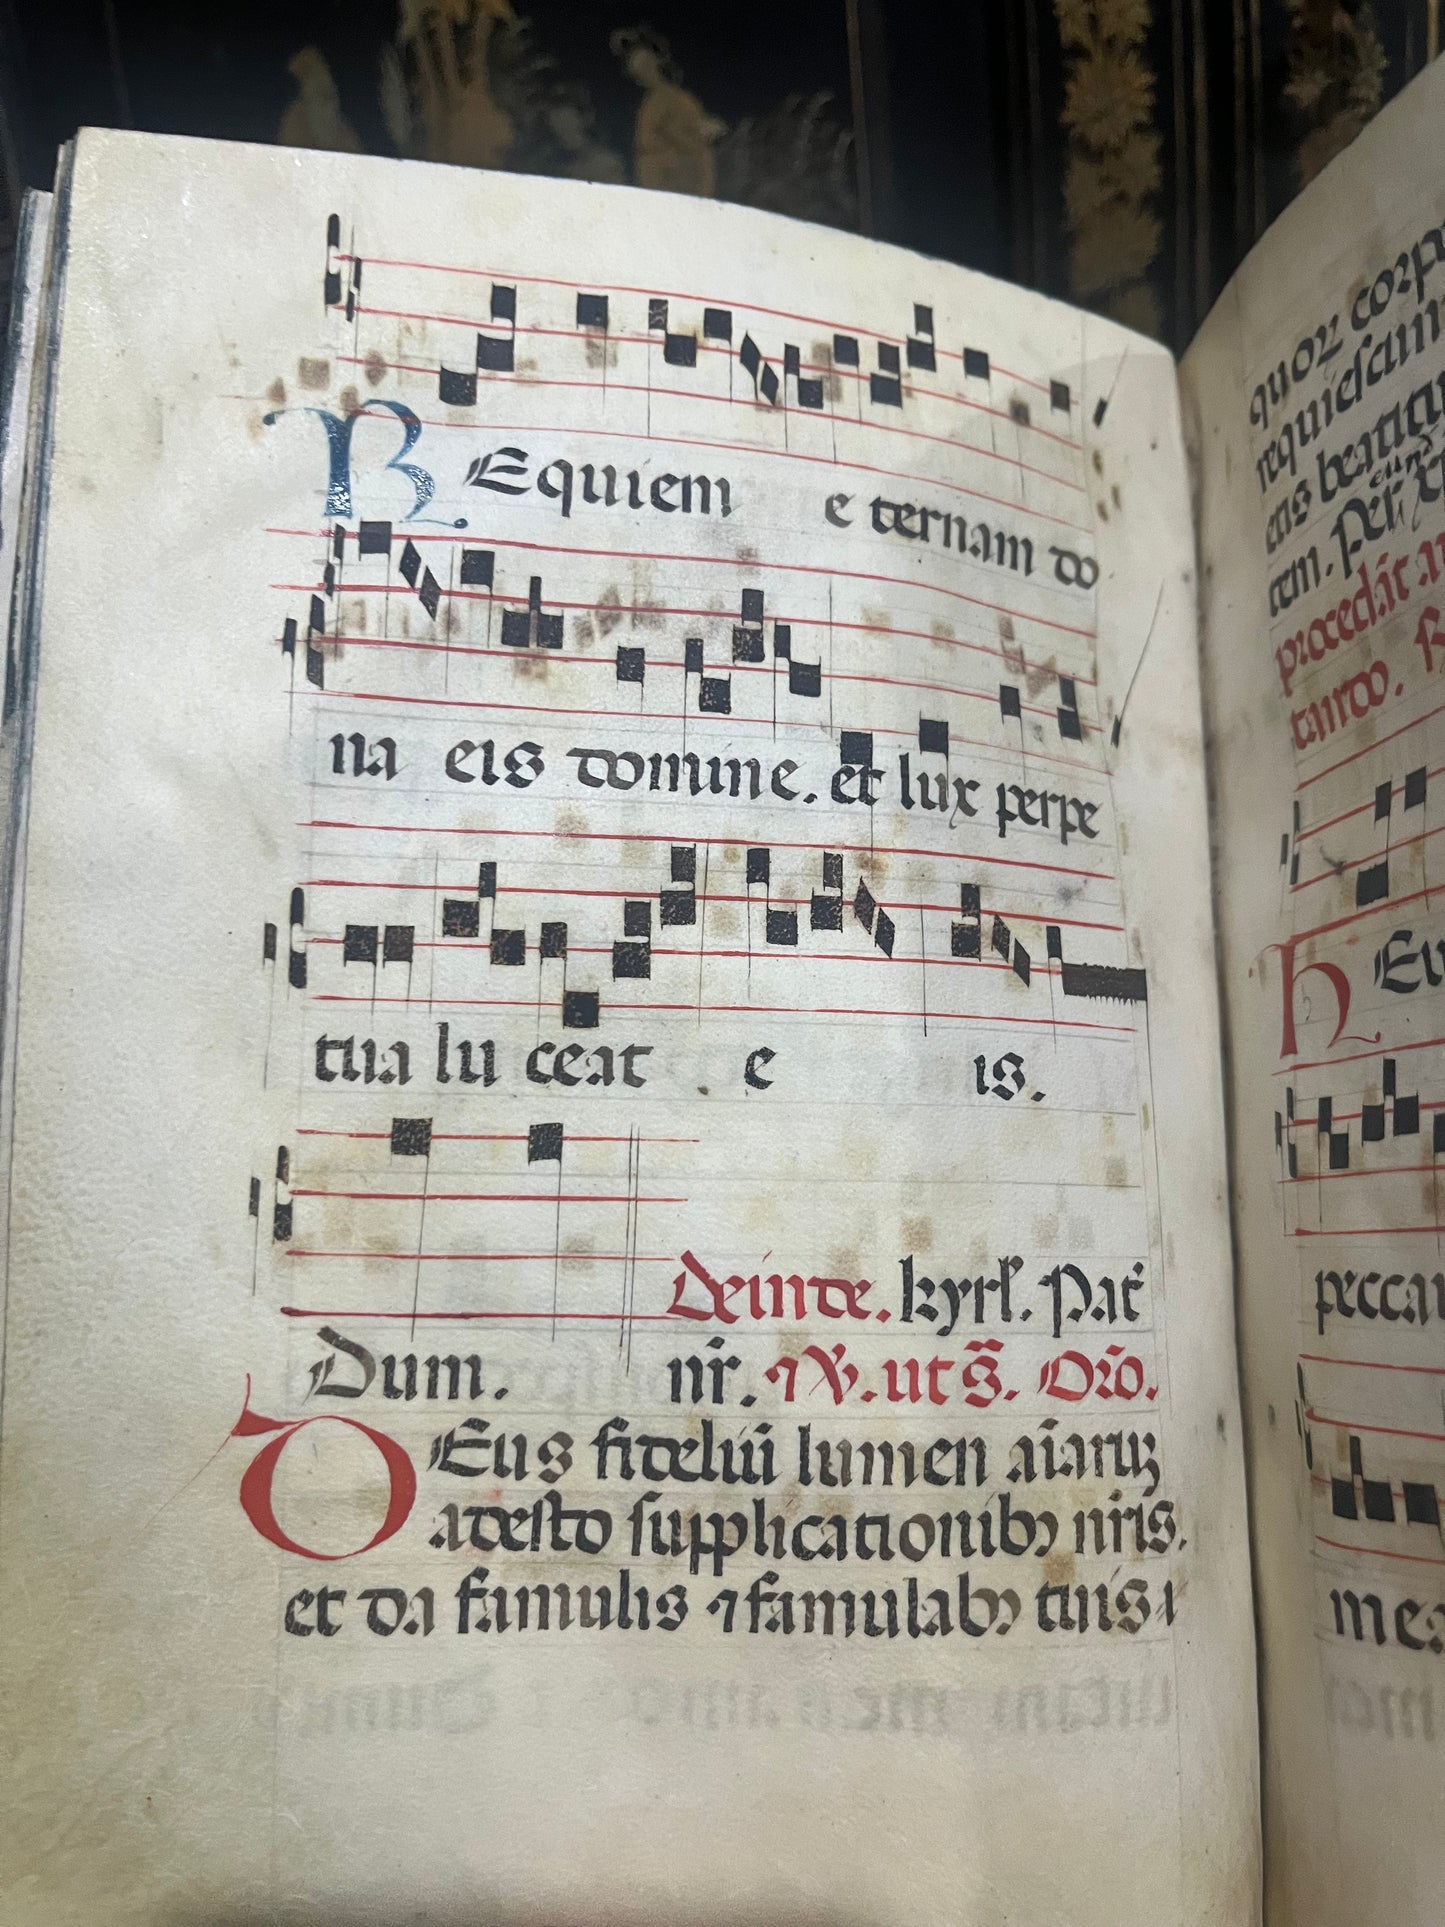 REquiem e ternam do
na eis domine. et lux perpe
tua lu ceat e is.
Deinde. kyrl̃. Pat̃
Dum. nr̃. ⁊ ℣. ut s̃. Orõ.
DEus fideliũ lumen aĩaruꝫ
adesto supplicationibꝰ nr̃is.
et da famulis ⁊ famulabꝰ tuis
quoꝝ corp
requiescun
eis beatitu
tem. Per
procedit
tando.
HEu
pecca
mea